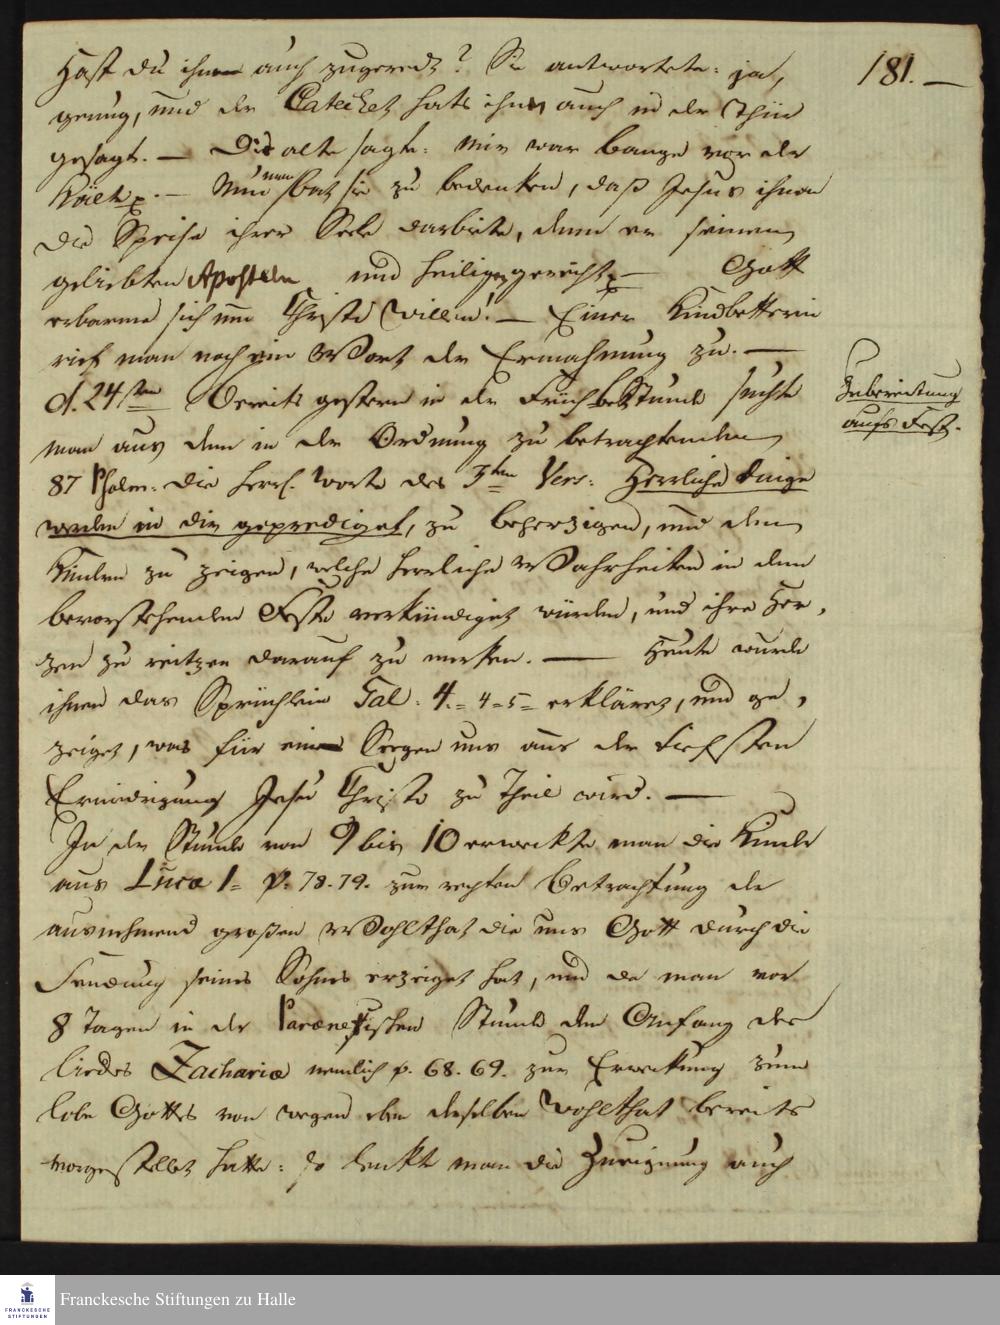 181. —
Hast du ihnen auch zugeredt? Sie antwortete: ja,
genung, und der Catechet hats ihnen auch in der Thür
gesagt. — Die alte sagte: Mir war bange vor der
Kälte. — Nun bat man sie zu bedenken, daß Jesus ihnen
die Speise ihrer Seele darbiete, denn er seinen
geliebten Aposteln und Heiligen gereicht — Gott
erbarme sich um Christi Willen! — Einer Kindbetterin
rief man noch ein Wort der Ermahnung zu. —
d. 24sten Bereits gestern in der Früh betStunde suchte
Zubereitung
aufs Fest.
man aus dem in der Ordnung zu betrachtenden
87 Psalm: die herrl. Worte des 3ten Vers: Herrliche Dinge
werden in dir geprediget, zu beherzigen, und den
Kindern zu zeigen, welche herrliche Wahrheiten in dem
bevorstehenden Feste verkündiget würden, und ihre Her,
zen zu reitzen darauf zu merken. — Heute wurde
ihnen das Sprüchlein Gal. 4. = 4 = 5 = erkläret, und ge,
zeiget, was für ein Seegen uns aus der tiefsten
Erniedrigung Jesu Christi zu Theil wird. —
In der Stunde von 9 bis 10 erweckte man die Kinder
aus Luca 1 = v. 78. 79. zur rechten Betrachtung der
ausnehmend großen Wohlthat die uns Gott durch die
Sendung seines Sohnes erzeiget hat, und da man vor
8 Tagen in der Paraenetischen Stunde den Anfang des
Liedes Zachariae nemlich v. 68. 69. zur Erweckung zum
Lobe Gottes von wegen eben derselben Wohlthat bereits
vorgestellet hatte: so lenkte man die Zueignung auch
Franckesche Stiftungen zu Halle
FRANCKESCHE
STIFTUNGEN